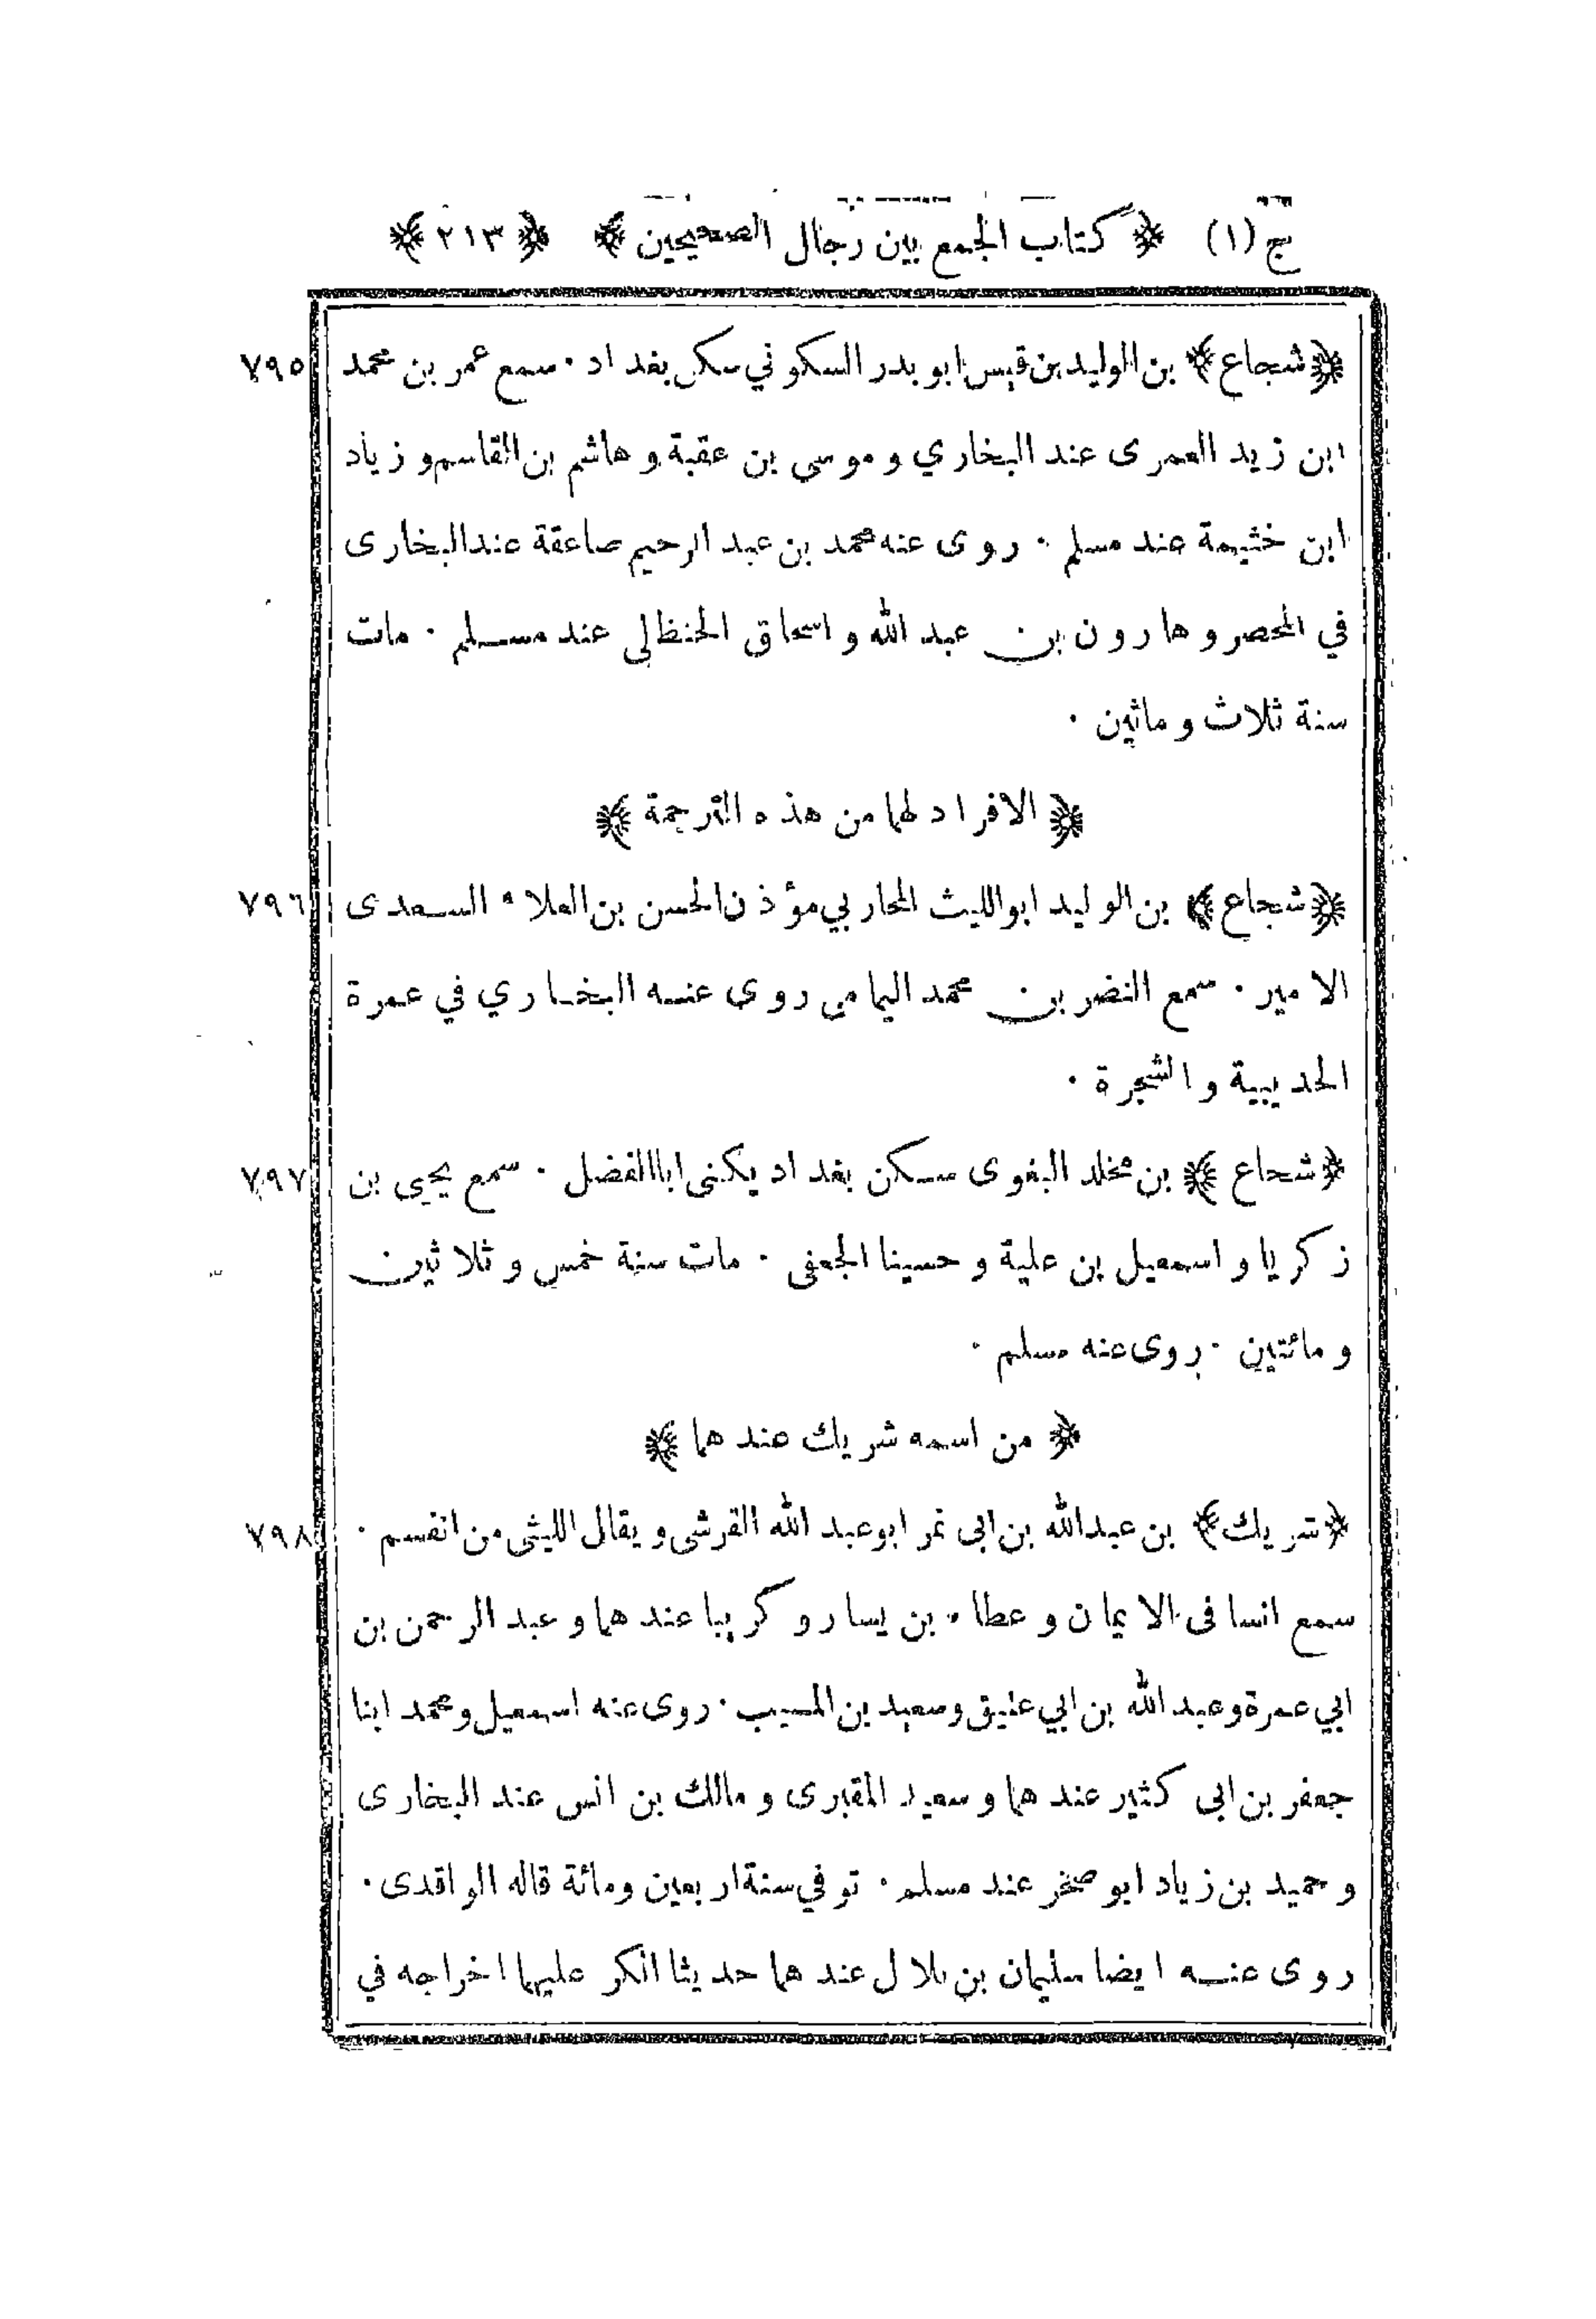 ج (١) ﴿ كتاب الجمع بين رجال الصحيحين ﴾ ﴿ ٢١٣ ﴾
﴿شجاع﴾ بن الوليد بن قيس ابو بدر السكوني سكن بغداد ٠ سمع عمر بن محمد ٧٩٥
ابن زيد العمرى عند البخاري و موسى بن عقبة و هاشم بن القاسم و زياد
ابن خثيمة عند مسلم ٠ روى عنه محمد بن عبد الرحيم صاعقة عند البخارى
في المحصر و هارون بن عبد الله و اسحاق الحنظلى عند مسلم ٠ مات
سنة ثلاث و مائين ٠
﴿ الافراد لهما من هذه الترجمة ﴾
﴿شجاع﴾ بن الوليد ابو الليث المحاربي مؤذن الحسن بن العلاء السعدى ٧٩٦
الامير ٠ سمع النضر بن محمد اليمامى روى عنه البخاري في عمرة
الحديبية و الشجرة ٠
﴿شجاع﴾ بن مخلد البغوى سكن بغداد يكنى ابا الفضل ٠ سمع يحيى بن ٧٩٧
زكريا و اسمعيل بن علية و حسينا الجعفى ٠ مات سنة خمس و ثلاثين
و مائتين ٠ روى عنه مسلم ٠
﴿ من اسمه شريك عندهما ﴾
﴿شريك﴾ بن عبد الله بن ابى نمر ابو عبد الله القرشى و يقال الليثى من انفسم ٠ ٧٩٨
سمع انسا فى الايمان و عطاء بن يسار و كريبا عندهما و عبد الرحمن بن
ابي عمرة و عبد الله بن ابي عتيق و سعيد بن المسيب ٠ روى عنه اسمعيل و محمد ابنا
جعفر بن ابى كثير عندهما و سعيد المقبرى و مالك بن انس عند البخارى
و حميد بن زياد ابو صخر عند مسلم ٠ توفي سنة اربعين و مائة قاله الواقدى ٠
روى عنه ايضا سليمان بن بلال عندهما حديثا انكر عليهما اخراجه في